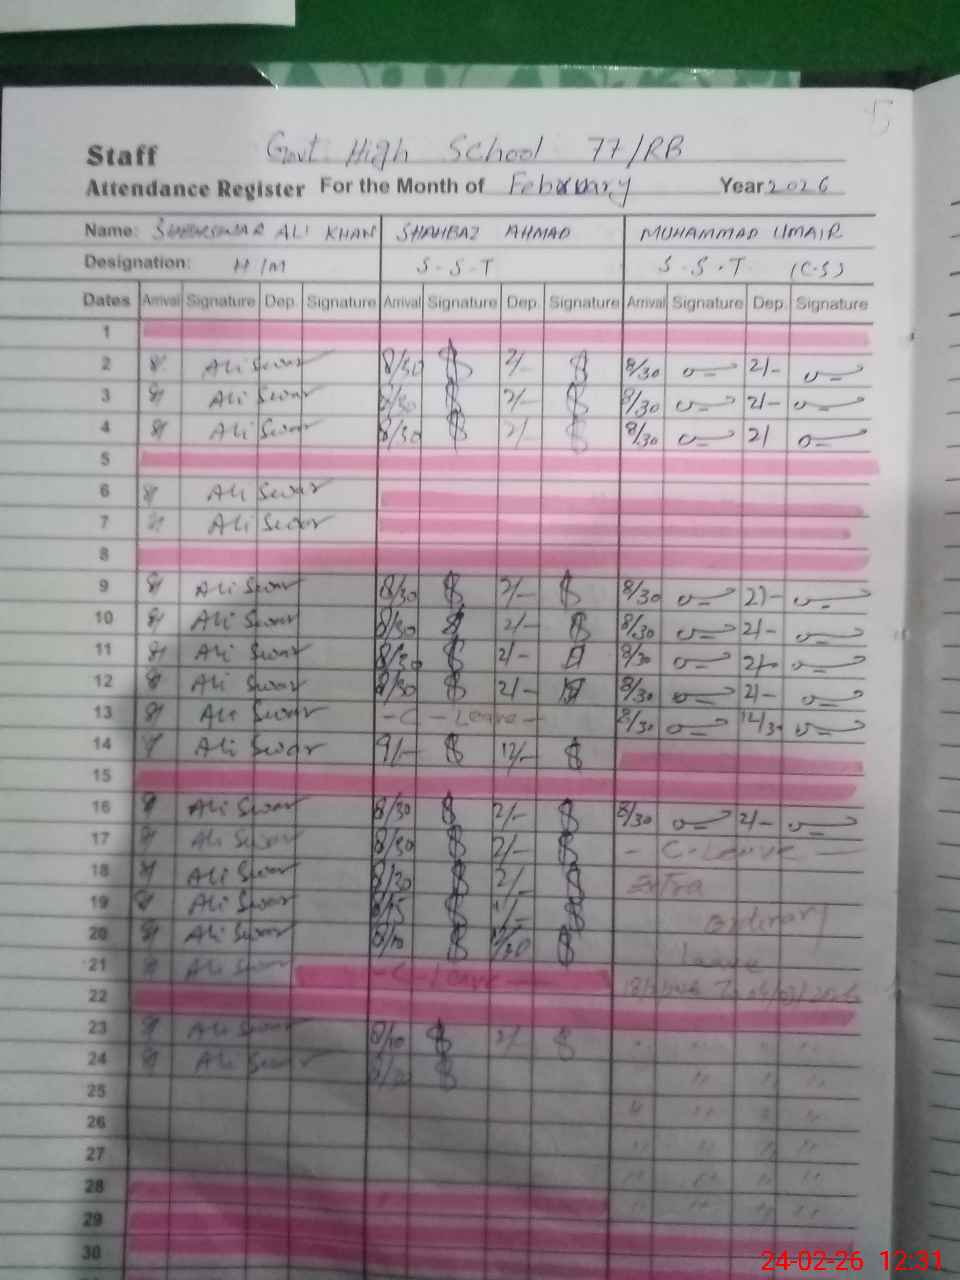 Staff Govt High School 77/RB
Attendance Register For the Month of February Year 2026
Name: ALI KHAN SHAHBAZ AHMAD MUHAMMAD UMAIR
Designation: H/M S-S-T S-S-T (C-S)
Dates Arrival Signature Dep. Signature Arrival Signature Dep. Signature Arrival Signature Dep. Signature
1
2 8/ Ali Swar 8/30 2/- 8/30 2/-
3 8/ Ali Swar 8/30 2/- 8/30 2/-
4 8/ Ali Swar 8/30 2/- 8/30 2/
5
6 8/ Ali Swar
7 Ali Swar
8
9 8/ Ali Swar 8/30 2/- 8/30 2/-
10 8/ Ali Swar 8/30 2/- 8/30 2/-
11 8/ Ali Swar 8/30 2/- 8/30
12 8/ Ali Swar 8/30 2/- 8/30 2/-
13 8/ Ali Swar -C-Leave- 8/30 12/30
14 Ali Swar 9/- 12/-
15
16 8/ Ali Swar 8/30 2/- 8/30 2/-
17 8/ Ali Swar 8/30 2/- - C-Leave -
18 8/ Ali Swar 8/30 2/- Extra
19 8/ Ali Swar Ordinary
20 8/ Ali Swar 8/10 Leave
21 8/ Ali Swar -C-Leave-
22
23 8/ Ali Swar 8/10 2/ " " " "
24 8/ Ali Swar " " "
25 " " "
26 " " " "
27 " " " "
28 " " " "
29
30
24-02-26 12:31